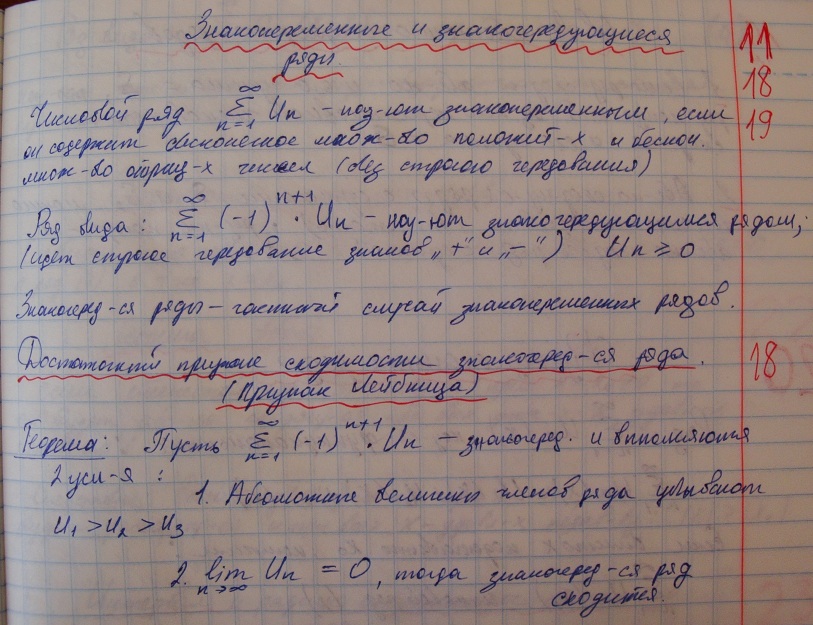 Знакопеременные и знакочередующиеся 11
ряды. 18
Числовой ряд ∑_{n=1}^{∞} Uₙ – наз-ют знакопеременным, если 19
он содержит бесконечное множ-во положит-х и бескон.
множ-во отриц-х чисел (без строгого чередования)
Ряд вида: ∑_{n=1}^{∞} (-1)^{n+1} · Uₙ – наз-ют знакочередующимся рядом,
(идет строгое чередование знаков „+" и „–") Uₙ ≥ 0
Знакочеред-ся ряды – частный случай знакопеременных рядов.
Достаточный признак сходимости знакочеред-ся ряда. 18
(Признак Лейбница)
Теорема: Пусть ∑_{n=1}^{∞} (-1)^{n+1} · Uₙ – знакочеред. и выполняются
2 усл-я :
1. Абсолютные величины членов ряда убывают
U₁ > U₂ > U₃
2. lim_{n→∞} Uₙ = 0, тогда знакочеред-ся ряд
сходится.